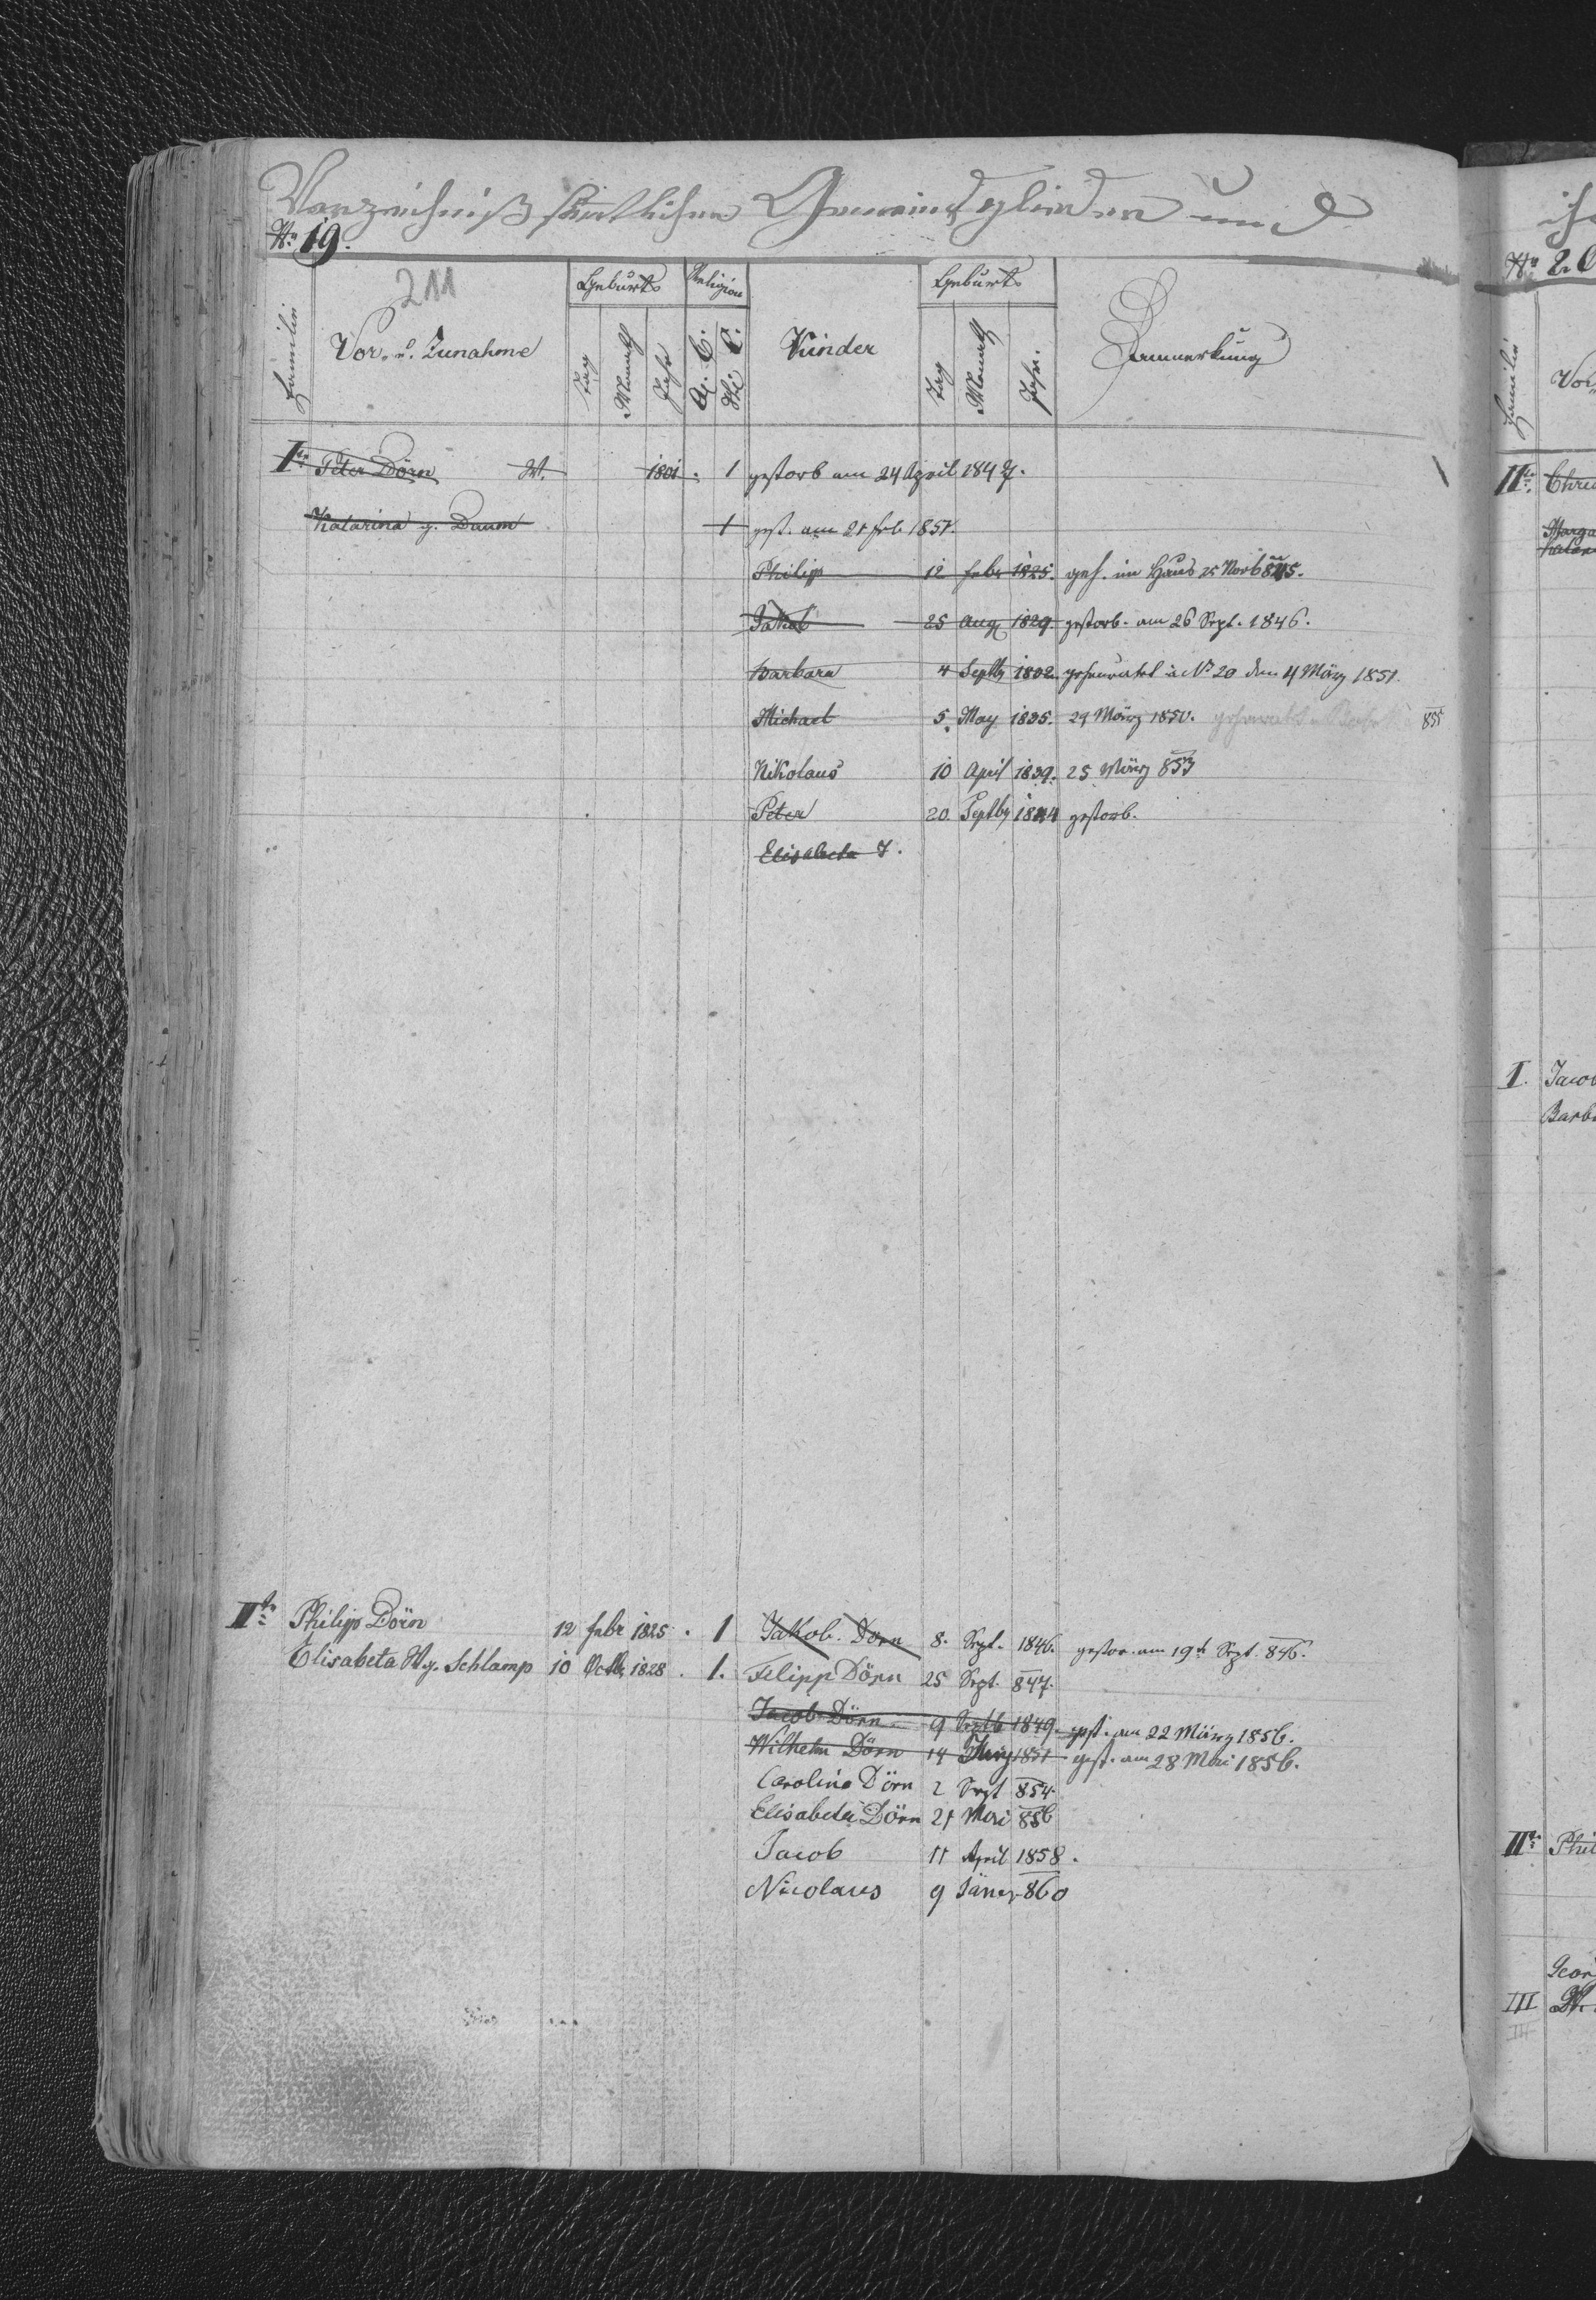 Verzeichniß sämtlicher Gemeindsglieder und
No 19.
211
Familie
Vor- u. Zunahme
Geburts
Tag
Monath
Jahr
Religion
A. C.
H. C.
Kinder
Geburts
Tag
Monath
Jahr.
Anmerkung
Ite Peter Dörn W. 1801 . 1 gestorb am 24 April 1847.
Katarina g. Daum 1 gest. am 21 feb 1851.
Philip 12 febr 1825. geh. im Haus 25 Novb 845.
Jakob 25 Aug 1829. gestorb. am 26 Sept. 1846.
Barbara 4 Septb 1832. geheurathet in No 20 den 4 März 1851.
Michael 5. May 1835. 29 März 1850. 855
Nikolaus 10 April 1839. 25 März 853
Peter 20. Septbr 1844 gestorb.
Elisabeta †.
IIte Philipp Dörn 12 febr 1825 . 1 Jakob. Dörn 8. Sept. 1846. gestor. am 19t Sept. 846.
Elisabeta W g. Schlamp 10 Octb 1828 . 1. Filipp Dörn 25 Sept. 847.
Jacob Dörn 9 Septb 1849. gest. am 22 März 1856.
Wilhelm Dörn 14 1851 gest. am 28 Mai 1856.
Carolina Dörn 2 Sept 854.
Elisabeta Dörn 21 Mai 856
Jacob 11 April 1858.
Nicolaus 9 Jäner 860
No 20
Familie
IIte
I.
IIte
III
III